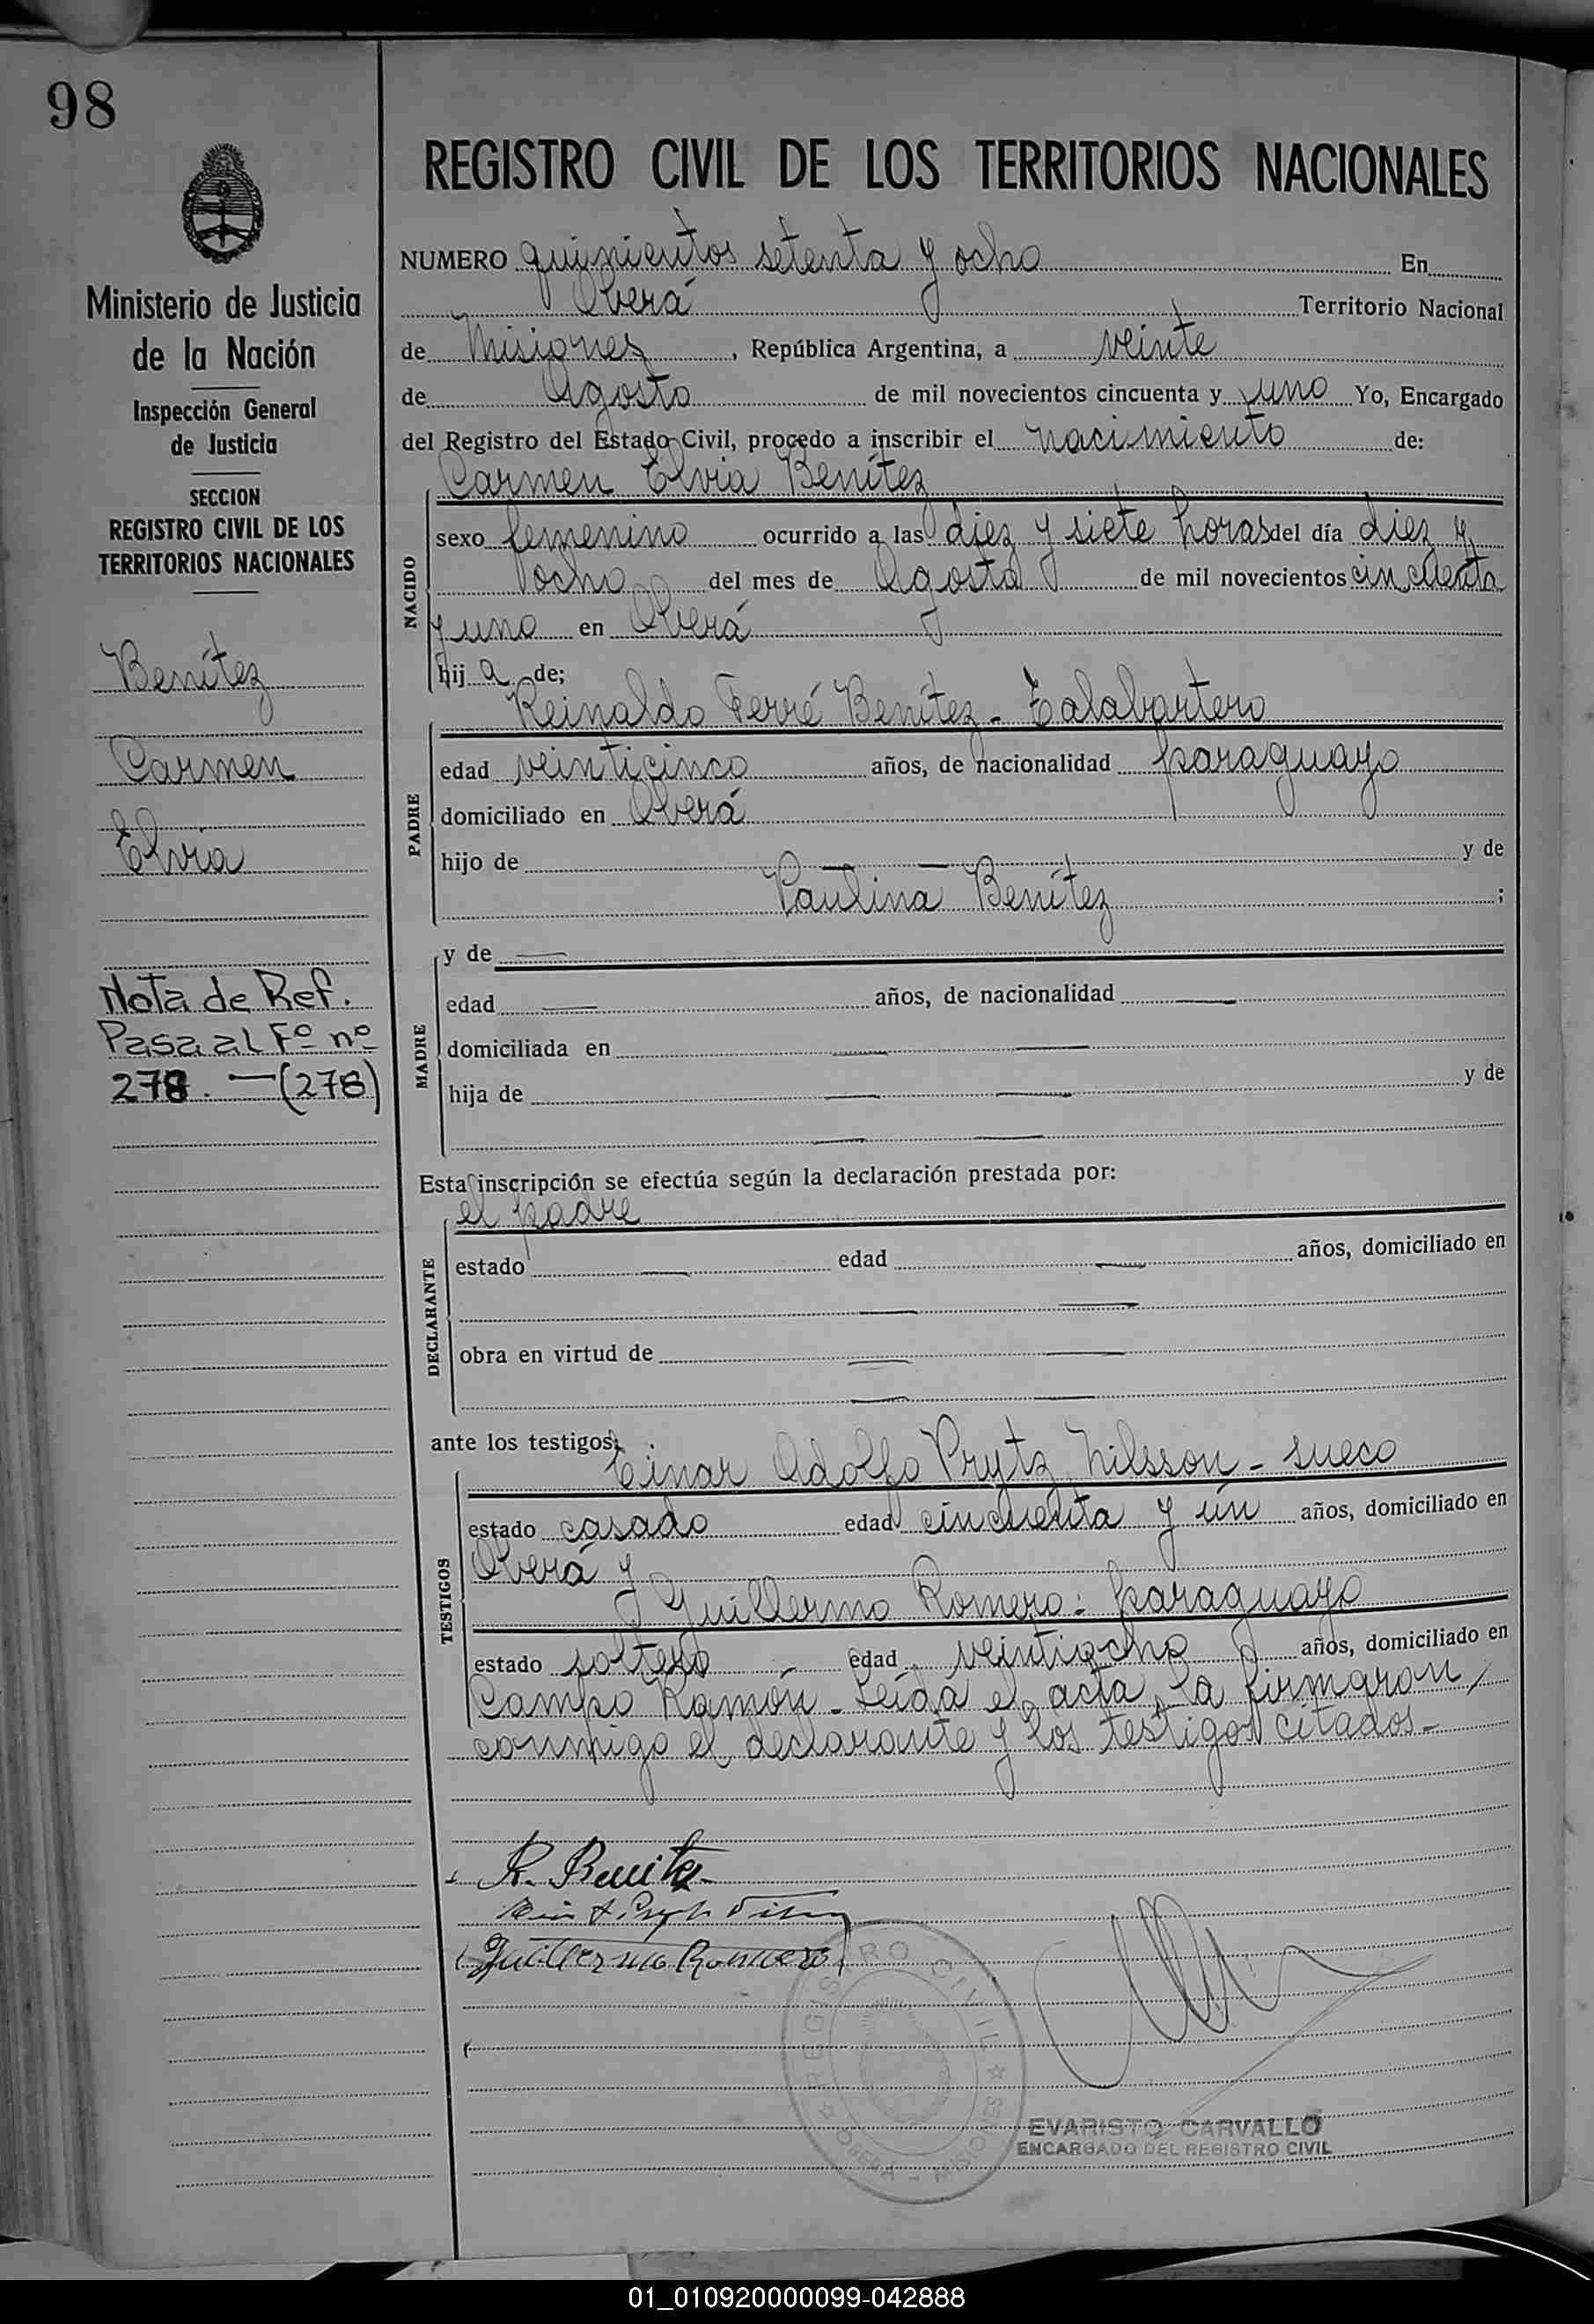 98
Ministerio de Justicia
de la Nación
Inspección General
de Justicia
SECCION
REGISTRO CIVIL DE LOS
TERRITORIOS NACIONALES
Benítez
Carmen
Elvia
Nota de Ref.
Pasa al Fº nº
278. —(278)
REGISTRO CIVIL DE LOS TERRITORIOS NACIONALES
NUMERO quinientos setenta y ocho En
Oberá Territorio Nacional
de Misiones, República Argentina, a veinte
de Agosto de mil novecientos cincuenta y uno Yo, Encargado
del Registro del Estado Civil, procedo a inscribir el nacimiento de:
Carmen Elvia Benítez
NACIDO
sexo femenino ocurrido a las diez y siete horas del día diez y
ocho del mes de Agosto de mil novecientos cincuenta
y uno en Oberá
hija de;
Reinaldo Ferré Benítez - Talabartero
PADRE
edad veinticinco años, de nacionalidad paraguayo
domiciliado en Oberá
hijo de — — y de
Paulina Benítez ;
MADRE
y de —
edad — años, de nacionalidad —
domiciliada en — —
hija de — — y de
— —
Esta inscripción se efectúa según la declaración prestada por:
el padre
DECLARANTE
estado — edad — años, domiciliado en
— —
obra en virtud de — —
— —
ante los testigos:
Einar Adolfo Prytz Nilsson - sueco
TESTIGOS
estado casado edad cincuenta y un años, domiciliado en
Oberá y
Guillermo Romero: paraguayo
estado soltero edad veintiocho años, domiciliado en
Campo Ramón - Leída el acta, la firmaron,
conmigo el declarante y los testigos citados.-
R. Benitez
Guillermo Romero
REGISTRO CIVIL
OBERA - MISIONES
EVARISTO CARVALLO
ENCARGADO DEL REGISTRO CIVIL
01_010920000099-042888